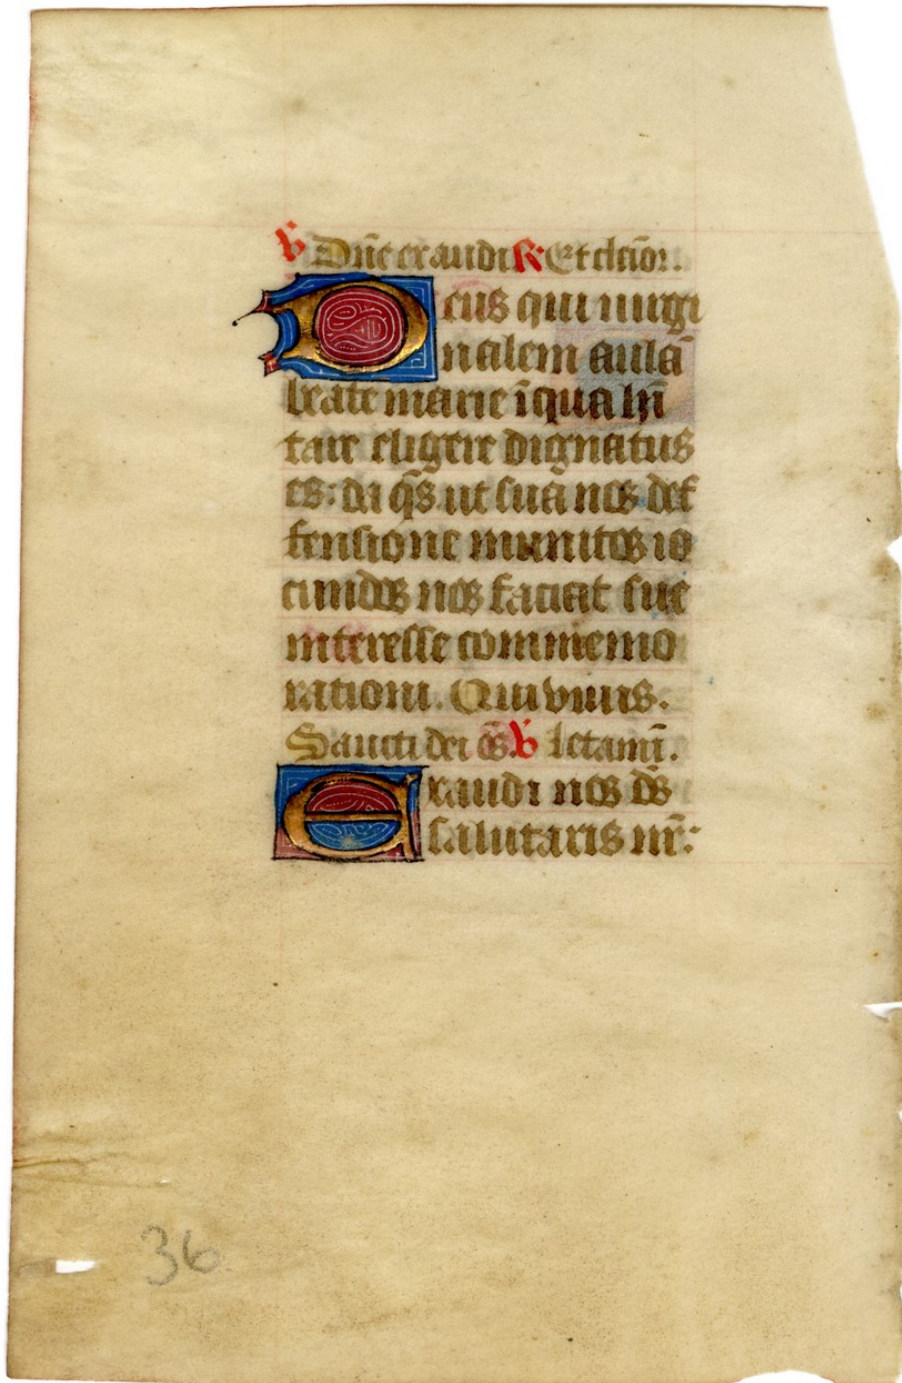 ℣ Dñe exaudi ℟ Et clam̄or.
Deus qui uirgi
nalem aulā
beate marie ī qua hīi
tare eligere dignatus
es: da q̄s. ut sua nos def
fensione munitos io
cundos nos faciat sue
interesse commemo
rationi. Qui viuis.
Sancti dei ōs. ℣ letamī.
Exaudi nos ds̄
salutaris nr̄:
36